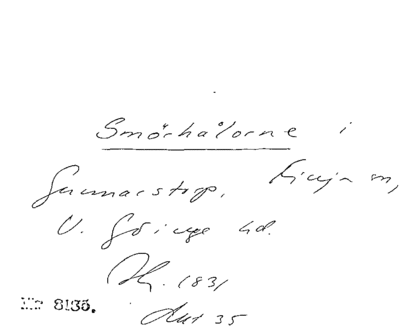 Smörhålorne i
Gunnarstorp, Finja sn,
V. Göinge hd.
1831
Akt 35
Nr 8135.